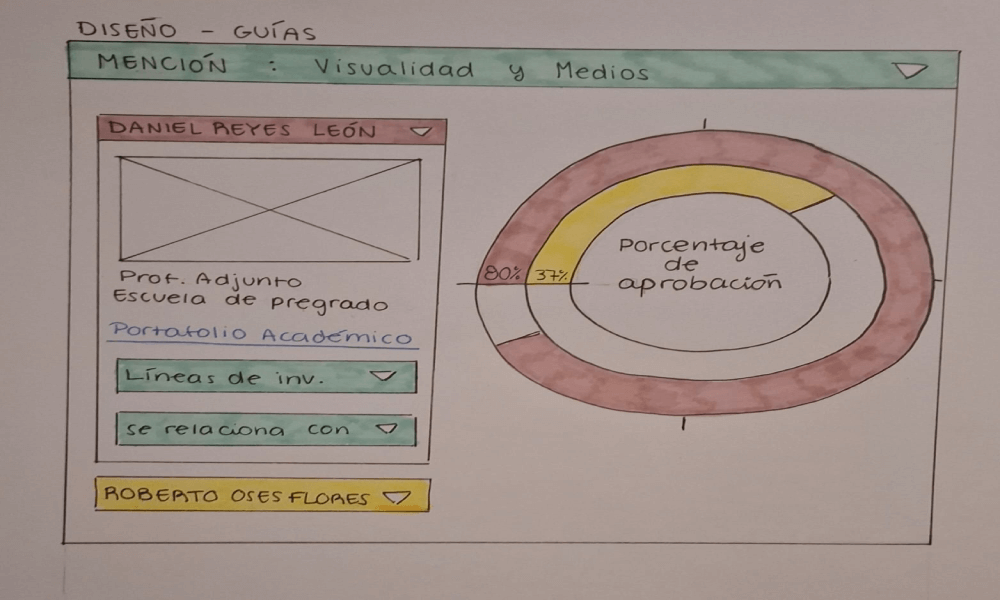 DISEÑO - GUÍAS
MENCIÓN : Visualidad y Medios
DANIEL REYES LEÓN
Prof. Adjunto
Escuela de pregrado
Portafolio Académico
Líneas de inv.
se relaciona con
ROBERTO OSES FLORES
80% 37%
Porcentaje
de
aprobación